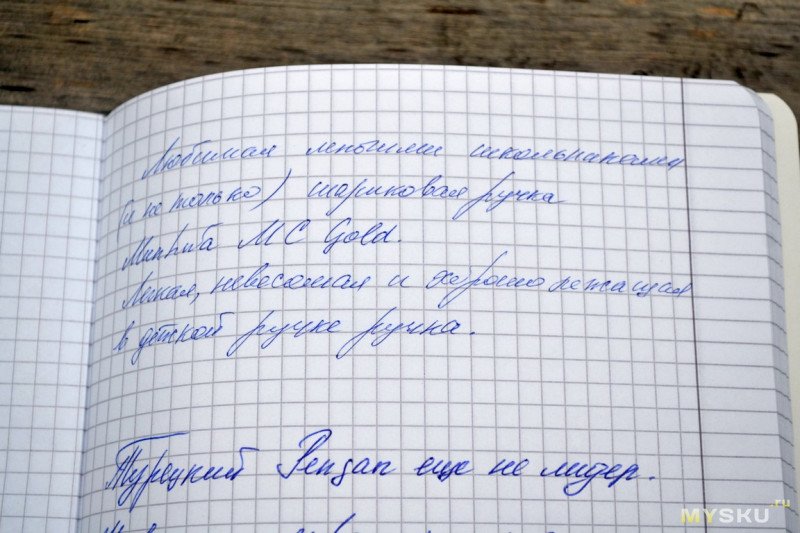 Любимая многими школьниками
(и не только) шариковая ручка
MunHwa MC Gold.
Легкая, невесомая и хорошо лежащая
в детской ручке ручка.
Турецкий Pensan еще не лидер.
MYSKU.ru